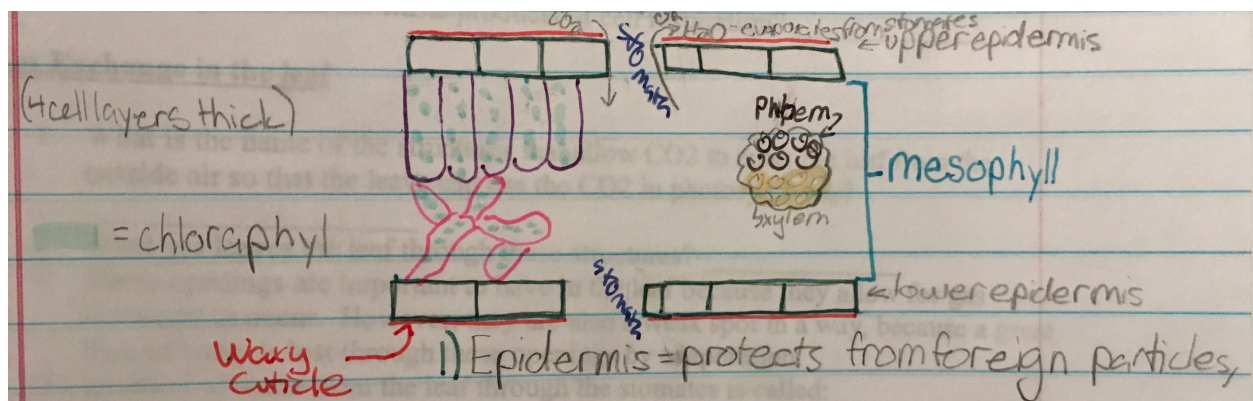 CO2
H2O-evaporates from stomates
←upper epidermis
stomata
(4 cell layers thick)
Phloem
mesophyll
xylem
= chloraphyl
stomata
←lower epidermis
Waxy
cuticle
1) Epidermis = protects from foreign particles,